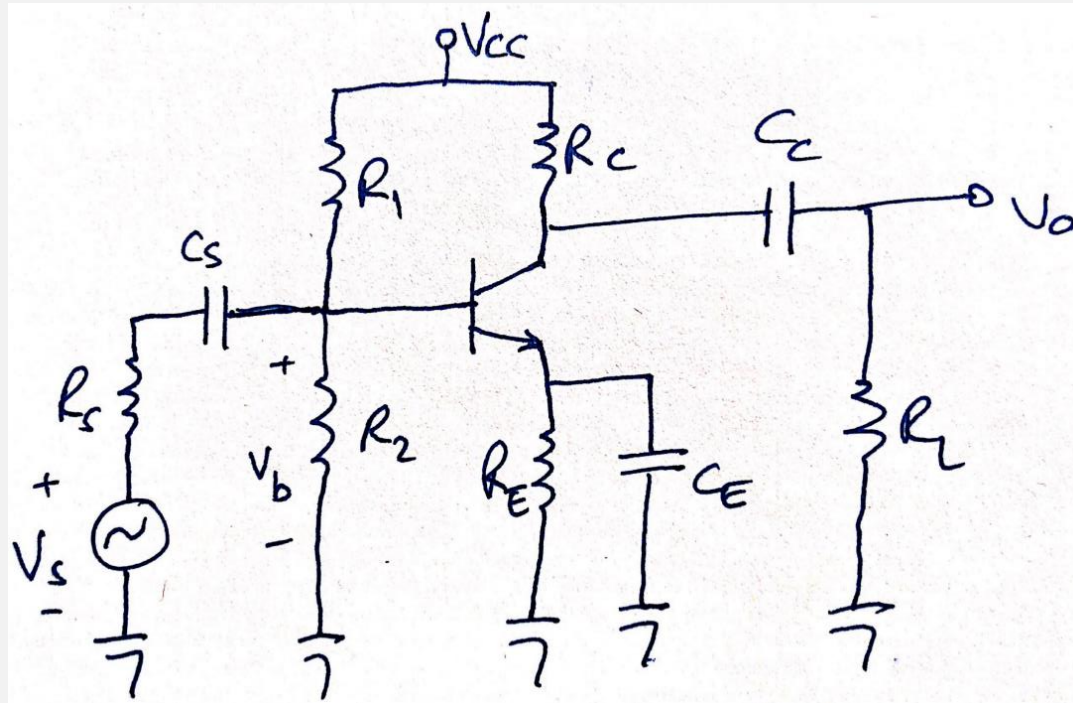 VCC
R1
RC
CC
Vo
CS
RS
+
Vb
-
R2
RE
CE
RL
+
VS
-